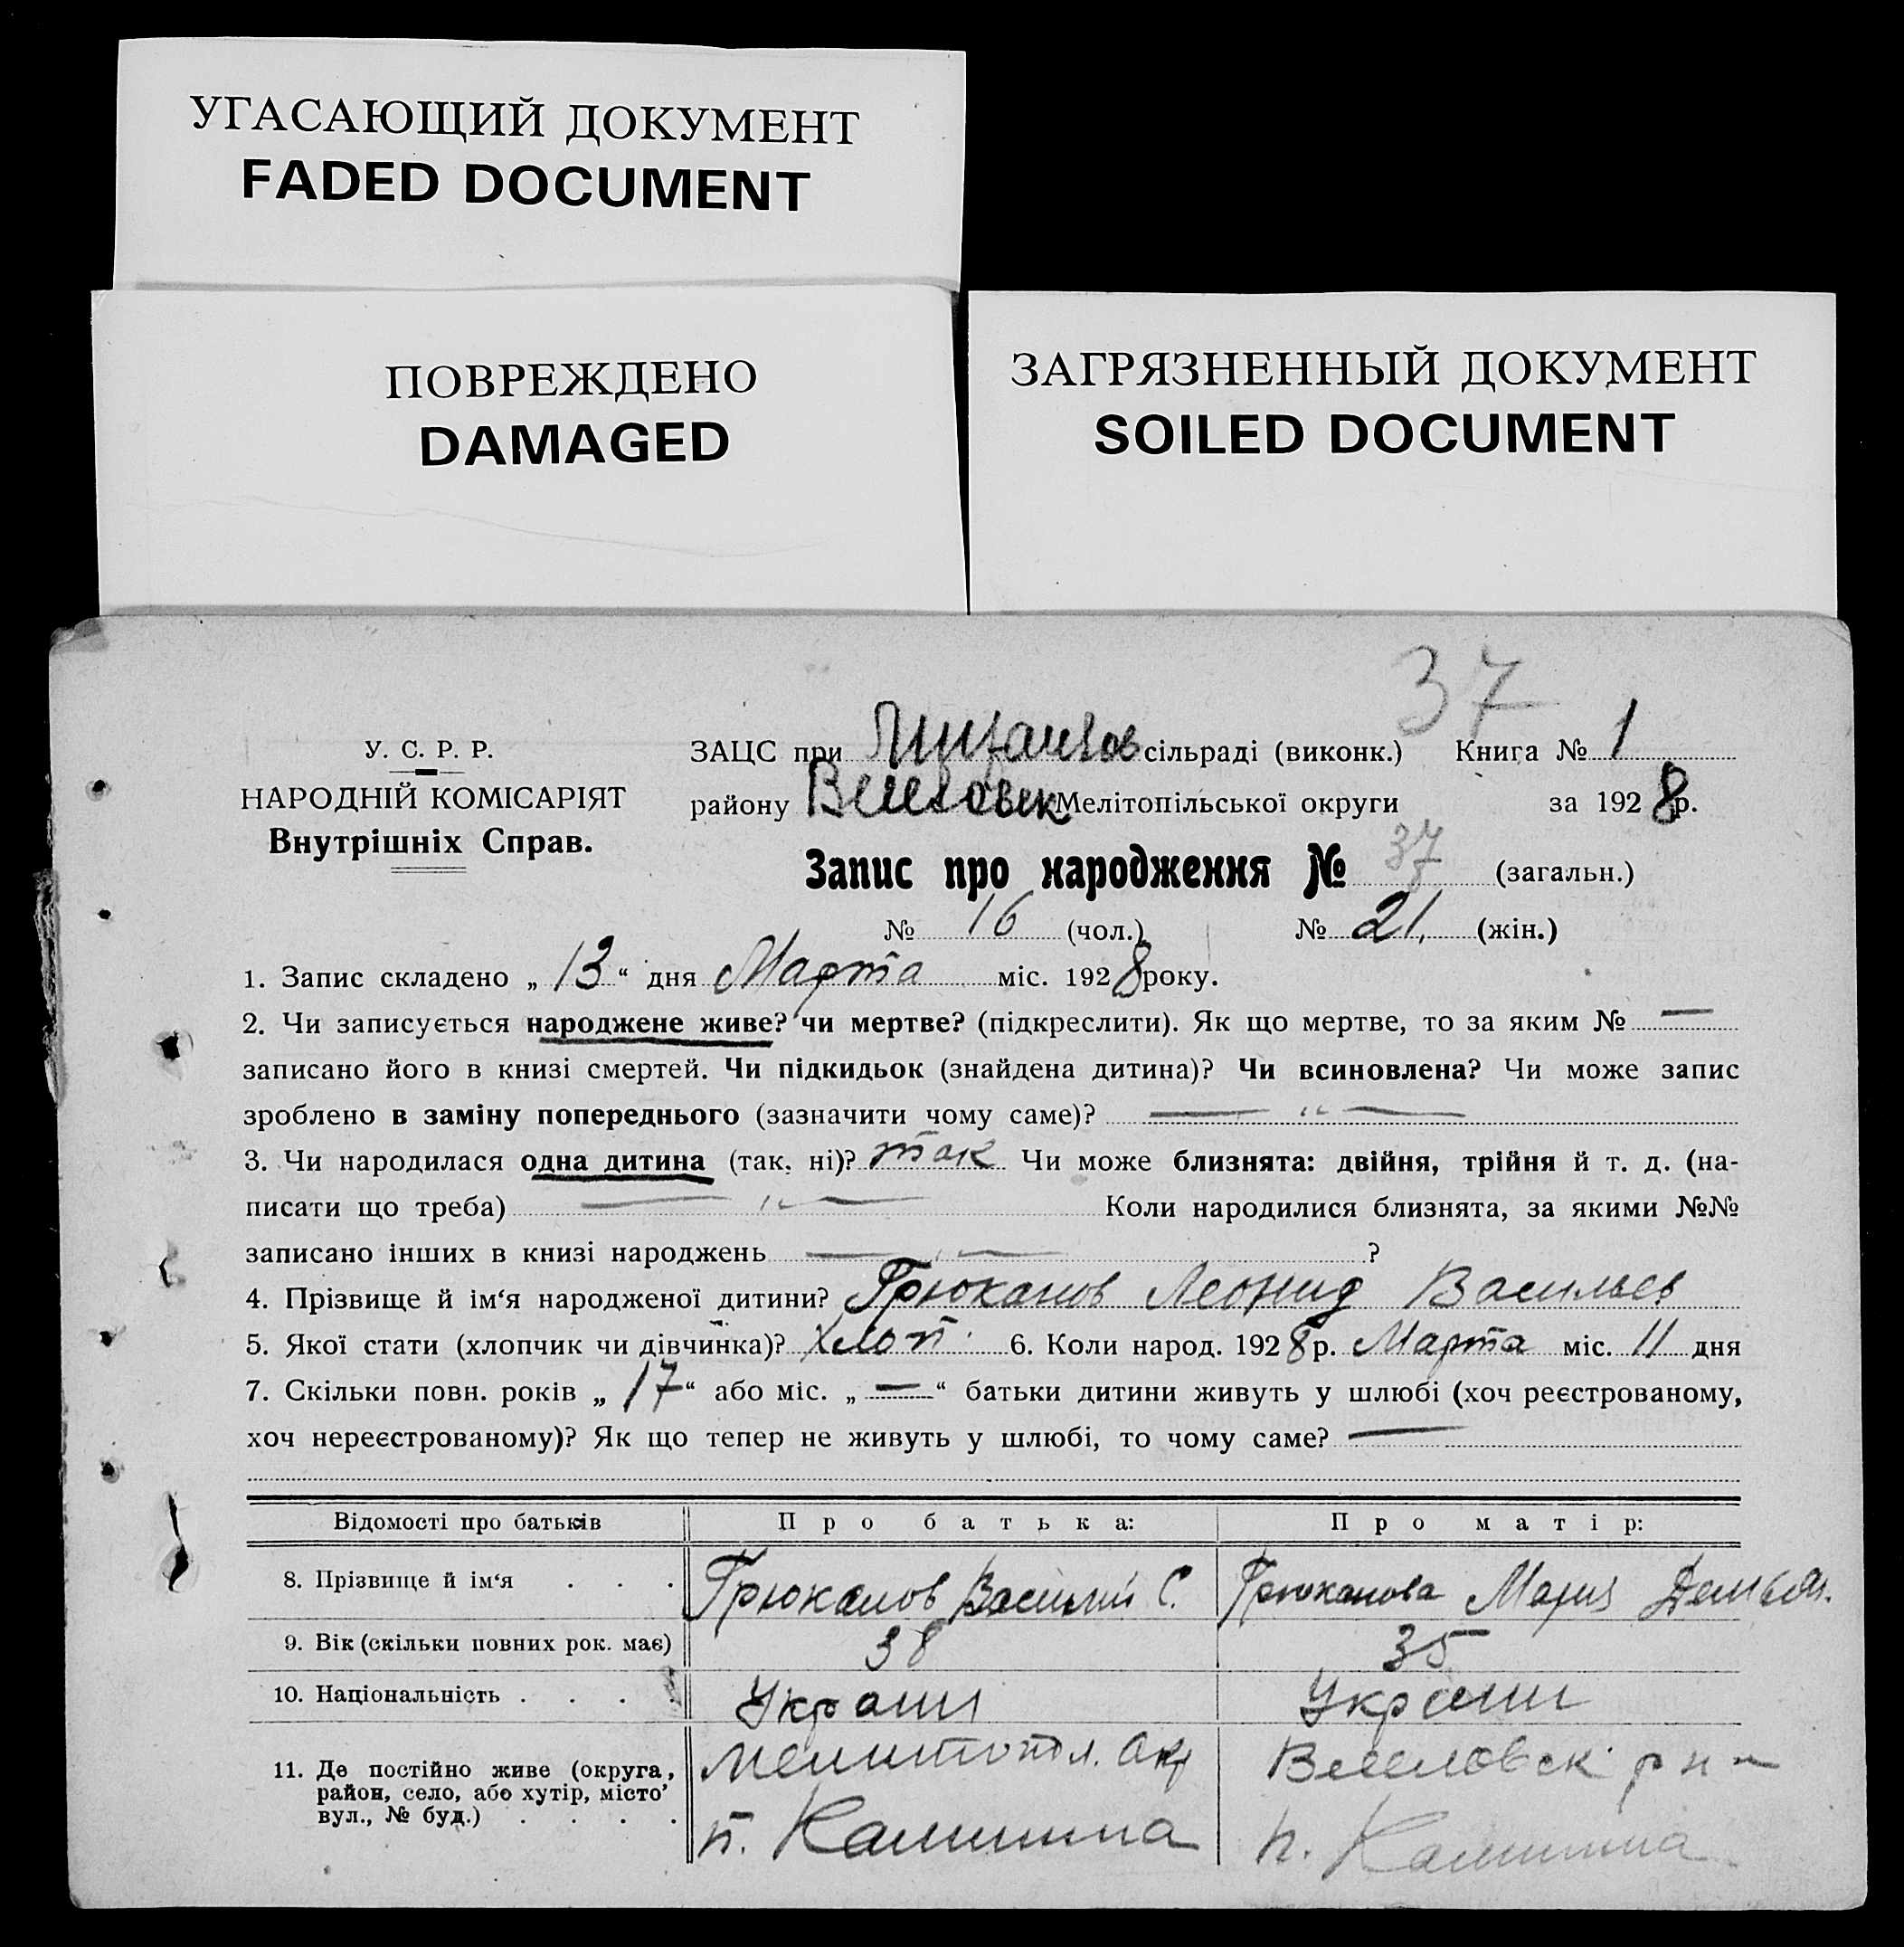 УГАСАЮЩИЙ ДОКУМЕНТ
FADED DOCUMENT
ПОВРЕЖДЕНО
DAMAGED
ЗАГРЯЗНЕННЫЙ ДОКУМЕНТ
SOILED DOCUMENT
37
У. С. Р. Р.
НАРОДНІЙ КОМІСАРІЯТ
Внутрішніх Справ.
ЗАЦС при сільраді (виконк.) Книга № 1
району Веселовск Мелітопільської округи за 1928 р.
Запис про народження № 37 (загальн.)
№ 16 (чол.) № 21. (жін.)
1. Запис складено „ 13 “ дня Марта міс. 1928 року.
2. Чи записується народжене живе? чи мертве? (підкреслити). Як що мертве, то за яким № —
записано його в книзі смертей. Чи підкидьок (знайдена дитина)? Чи всиновлена? Чи може запис
зроблено в заміну попереднього (зазначити чому саме)? — " —
3. Чи народилася одна дитина (так, ні)? так Чи може близнята: двійня, трійня й т. д. (на-
писати що треба) — " — Коли народилися близнята, за якими №№
записано інших в книзі народжень — " — ?
4. Прізвище й ім‘я народженої дитини? Грюканов Леонид Васильев
5. Якої стати (хлопчик чи дівчинка)? хлоп. 6. Коли народ. 1928 р. Марта міс. 11 дня
7. Скільки повн. років „ 17 “ або міс. „ — “ батьки дитини живуть у шлюбі (хоч реєстрованому,
хоч нереєстрованому)? Як що тепер не живуть у шлюбі, то чому саме? —
Відомості про батьків Про батька: Про матір:
8. Прізвище й ім‘я . . . Грюканов Василий С. Грюканова Мария Демьян.
9. Вік (скільки повних рок. має) 38 35
10. Національність . . . . Украин Украин
11. Де постійно живе (округа, Мелитопол. окр Веселовск. р н
район, село, або хутір, місто’
вул., № буд.) . . . . п. Калинина п. Калинина